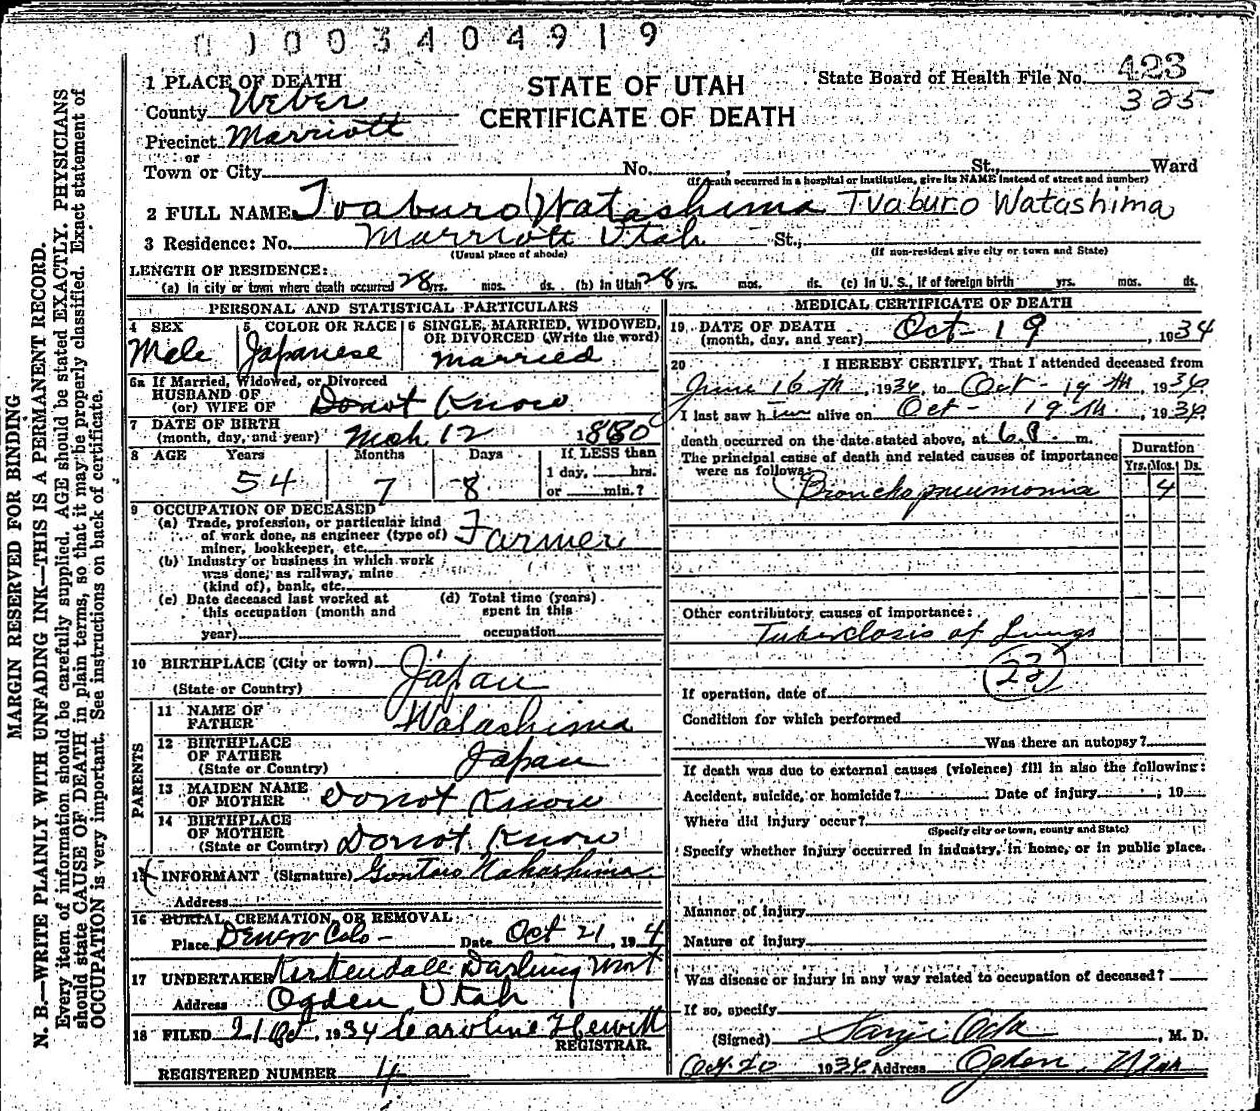 0003404919
1 PLACE OF DEATH
County Weber
Precinct Marriott
or
Town or City No. St., Ward
(If death occurred in a hospital or institution, give its NAME instead of street and number)
STATE OF UTAH
CERTIFICATE OF DEATH
State Board of Health File No. 423
325
2 FULL NAME Tvaburo Watashima Tvaburo Watashima
3 Residence: No. Marriott Utah St.,
(Usual place of abode) (If non-resident give city or town and State)
LENGTH OF RESIDENCE:
(a) In city or town where death occurred 28 yrs. mos. ds. (b) in Utah 28 yrs. mos. ds. (c) In U. S., if of foreign birth yrs. mos. ds.
PERSONAL AND STATISTICAL PARTICULARS
4 SEX Male
5 COLOR OR RACE Japanese
6 SINGLE, MARRIED, WIDOWED, OR DIVORCED (Write the word) married
6a If Married, Widowed, or Divorced
HUSBAND OF
(or) WIFE OF Donot Know
7 DATE OF BIRTH
(month, day, and year) Mch 12 1880
8 AGE Years Months Days If LESS than
1 day, hrs.
or min.?
54 7 8
9 OCCUPATION OF DECEASED
(a) Trade, profession, or particular kind
of work done, as engineer (type of)
miner, bookkeeper, etc. Farmer
(b) Industry or business in which work
was done, as railway, mine
(kind of), bank, etc.
(c) Date deceased last worked at
this occupation (month and
year)
(d) Total time (years)
spent in this
occupation
10 BIRTHPLACE (City or town)
(State or Country) Japan
PARENTS
11 NAME OF
FATHER Watashima
12 BIRTHPLACE
OF FATHER
(State or Country) Japan
13 MAIDEN NAME
OF MOTHER Donot Know
14 BIRTHPLACE
OF MOTHER
(State or Country) Donot Know
15 INFORMANT (Signature) Gontaro Nakashima
Address
16 BURIAL, CREMATION, OR REMOVAL:
Place Denver Colo Date Oct 21, 194
17 UNDERTAKER Kirkendall Darling
Address Ogden Utah
18 FILED 21 Oct. 1934 Caroline Hewitt
REGISTRAR.
REGISTERED NUMBER 4
MEDICAL CERTIFICATE OF DEATH
19 DATE OF DEATH
(month, day, and year) Oct - 19, 1934
20 I HEREBY CERTIFY, That I attended deceased from
June 16 th, 1934, to Oct - 19 th, 1934
I last saw him alive on Oct - 19 th, 1934
death occurred on the date stated above, at 6 P. m.
The principal cause of death and related causes of importance
were as follows:
Duration
Yrs. Mos. Ds.
Bronchopneumonia 4
Other contributory causes of importance:
Tuberclosis of Lungs
23
If operation, date of
Condition for which performed
Was there an autopsy?
If death was due to external causes (violence) fill in also the following:
Accident, suicide, or homicide? Date of injury , 19
Where did injury occur?
(Specify city or town, county and State)
Specify whether injury occurred in industry, in home, or in public place.
Manner of injury
Nature of injury
Was disease or injury in any way related to occupation of deceased?
If so, specify
(Signed) Oda, M. D.
Oct. 20 1934 Address Ogden, Utah
MARGIN RESERVED FOR BINDING
N. B.—WRITE PLAINLY WITH UNFADING INK—THIS IS A PERMANENT RECORD.
Every item of information should be carefully supplied. AGE should be stated EXACTLY. PHYSICIANS
should state CAUSE OF DEATH in plain terms, so that it may be properly classified. Exact statement of
OCCUPATION is very important. See instructions on back of certificate.